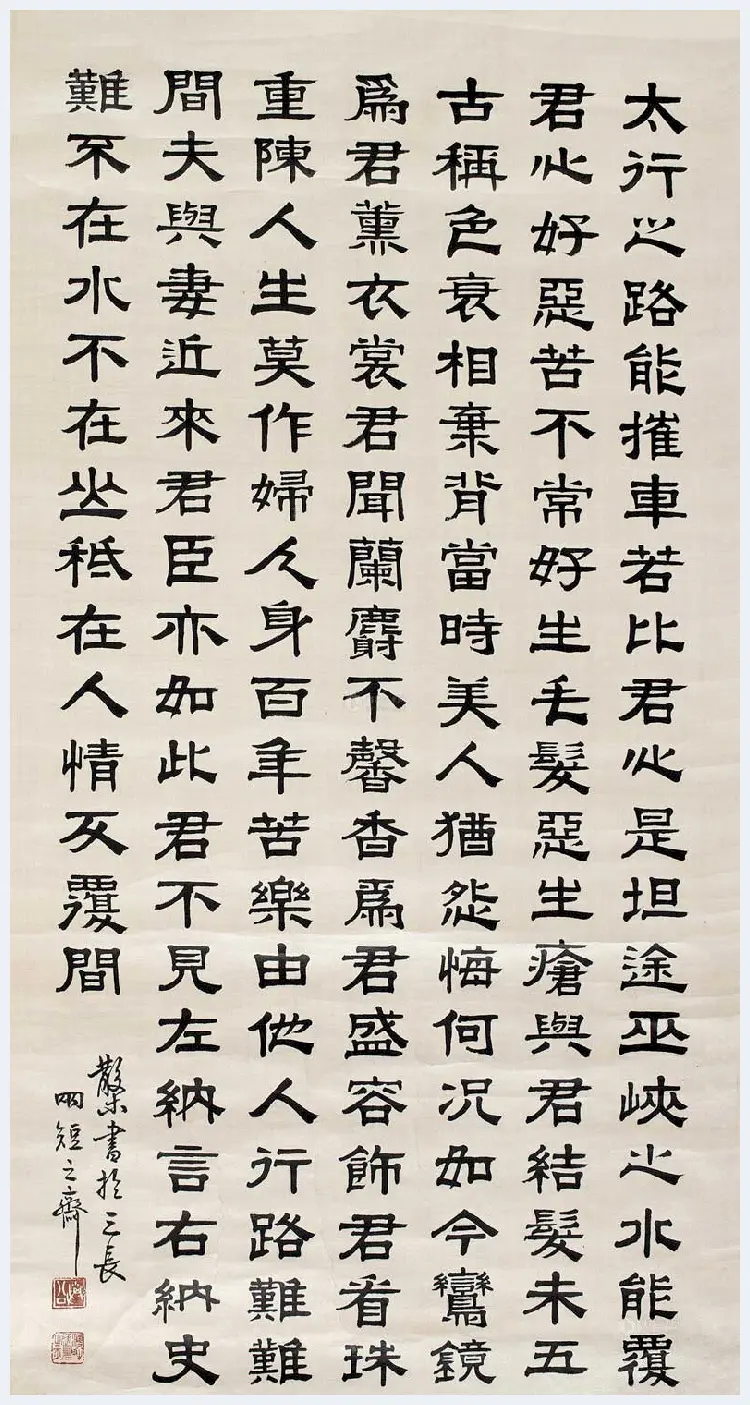 太行之路能摧車若比君心是坦途巫峽之水能覆
君心好惡苦不常好生毛髮惡生瘡與君結髮未五
古稱色衰相棄背當時美人猶怨悔何况如今鸞鏡
爲君薰衣裳君聞蘭麝不馨香爲君盛容飾君看珠
重陳人生莫作婦人身百年苦樂由他人行路難難
間夫與妻近來君臣亦如此君不見左納言右納史
難不在水不在山秪在人情反覆間
散木書於三長
兩短之齋